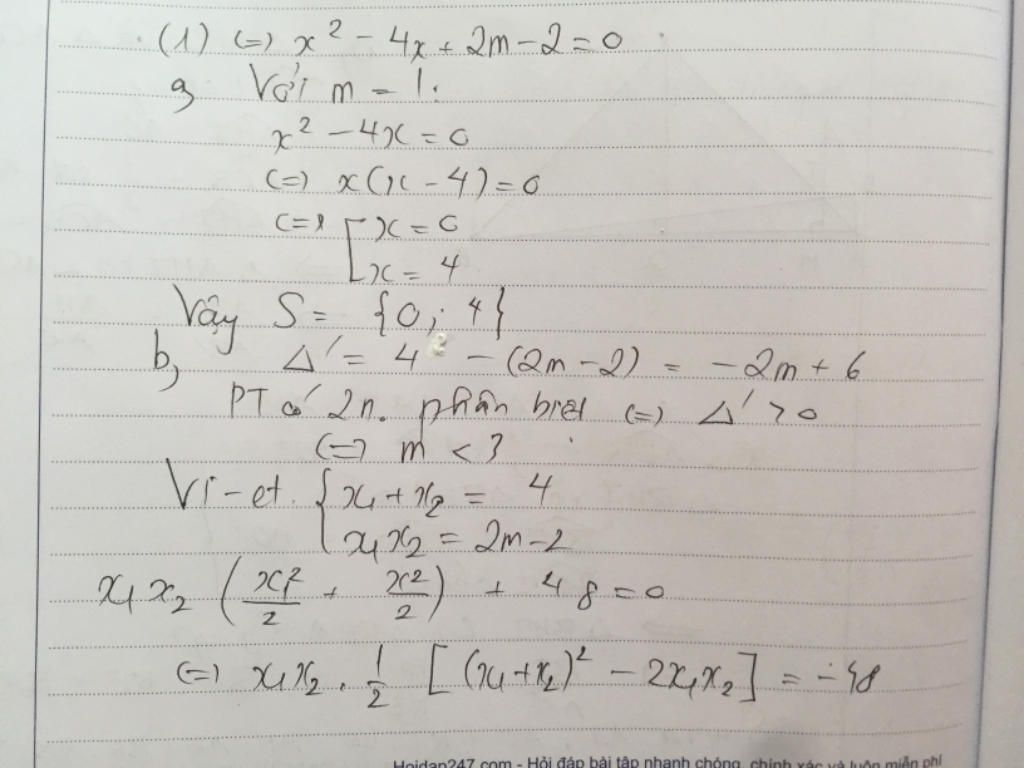 (1) (=) x² - 4x + 2m - 2 = 0
a, Với m = 1:
x² - 4x = 0
(=) x(x - 4) = 0
(=) [ x = 0
x = 4
Vậy S = {0; 4}
b, Δ' = 4 - (2m - 2) = -2m + 6
PT có 2n. phân biệt (=) Δ' > 0
(=) m < 3
Vi-et. { x₁ + x₂ = 4
x₁x₂ = 2m - 2
x₁x₂ (x₁²/2 + x₂²/2) + 48 = 0
(=) x₁x₂ . 1/2 [(x₁+x₂)² - 2x₁x₂] = -48
Hoidap247.com - Hỏi đáp bài tập nhanh chóng, chính xác và luôn miễn phí